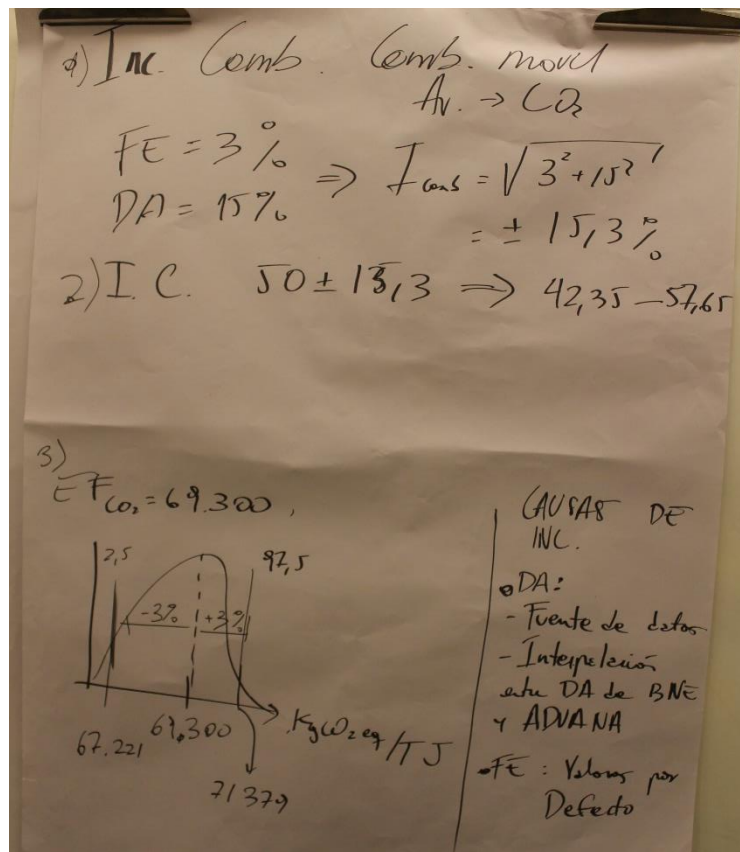 1) Inc. Comb. Comb. movil
Av. → CO2
FE = 3%
DA = 15%
⇒ I comb = √3²+15²
= ± 15,3%
2) I.C. 50 ± 15,3 ⇒ 42,35 – 57,65
3)
EF CO2 = 69.300,
2,5
97,5
-3%
+3%
67.221
69,300
KgCO2 eq/TJ
71379
CAUSAS DE
INC.
DA:
- Fuente de datos
- Interpolación
entre DA de BNE
y ADUANA
FE: Valores por
Defecto